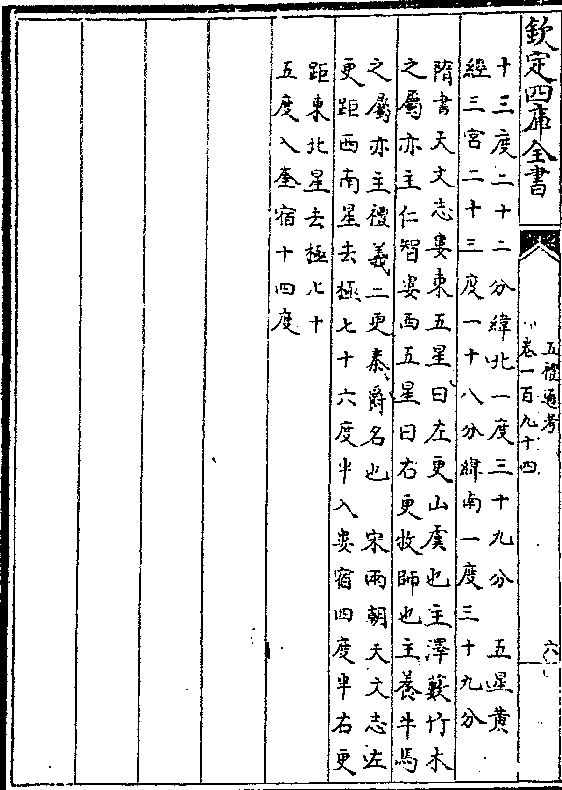 欽定四庫全書
五禮通考
卷一百九十四
六
十三度二十二分緯北一度三十九分　五星黄
經三宮二十三度一十八分緯南一度三十九分
隋書天文志婁東五星曰左更山虞也主澤藪竹木
之屬亦主仁智婁西五星曰右更牧師也主養牛馬
之屬亦主禮義二更秦爵名也　宋兩朝天文志左
更距西南星去極七十六度半入婁宿四度半右更
距東北星去極七十
五度入奎宿十四度